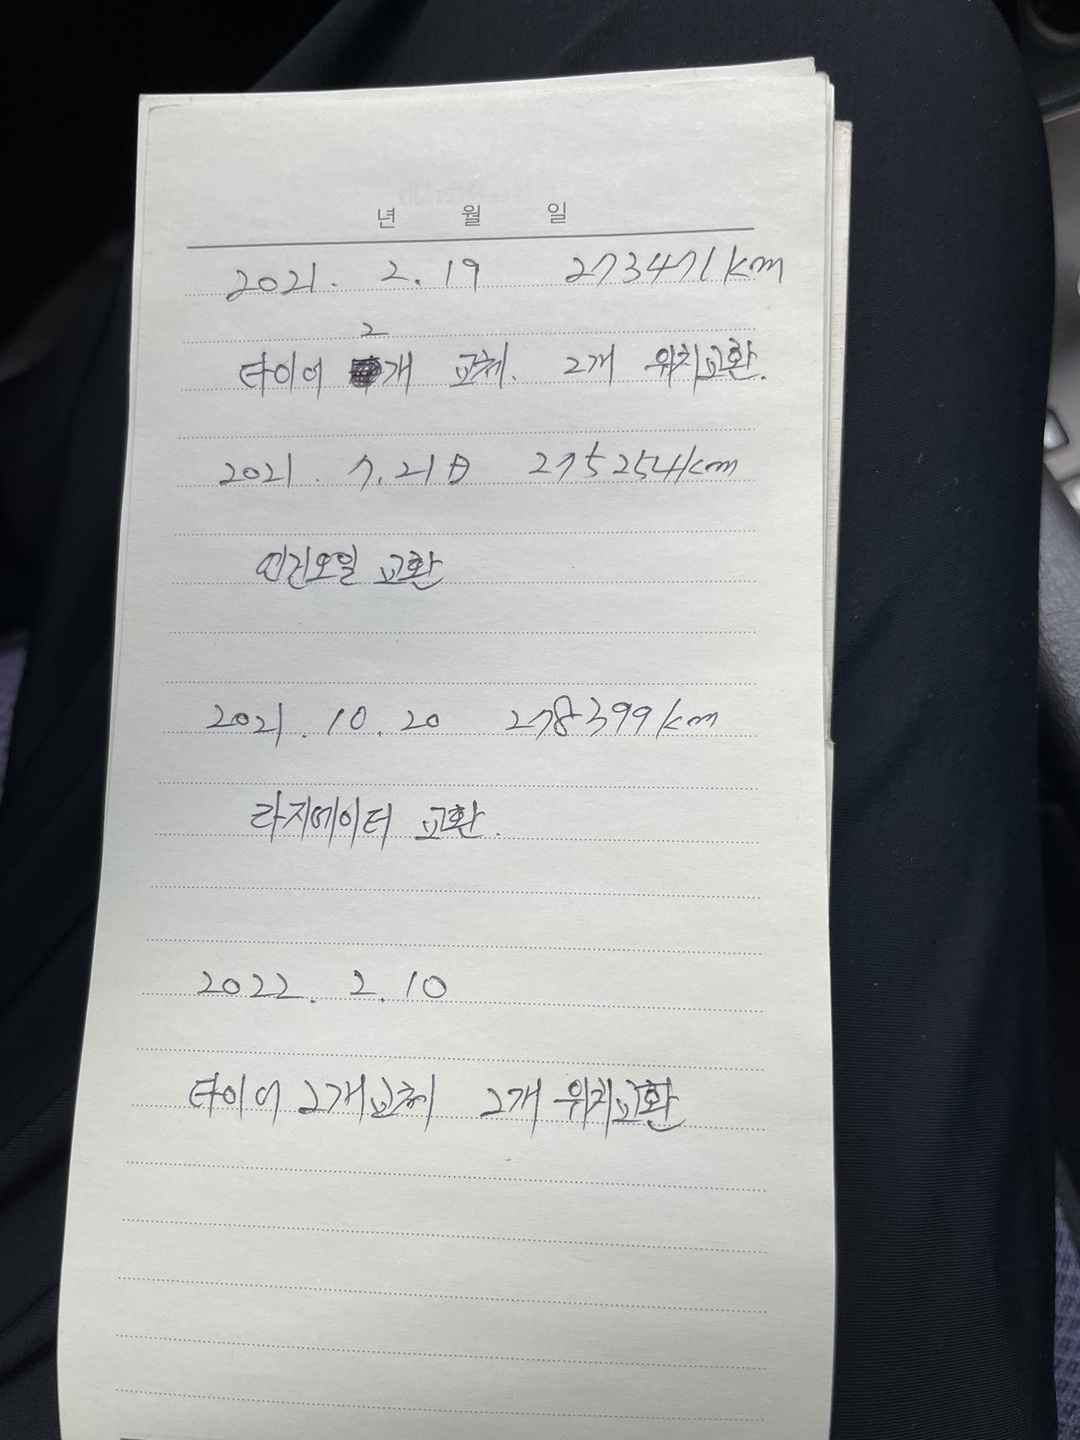 년 월 일
2021. 2. 19 273471km
2
타이어 개 교체. 2개 위치교환.
2021. 7. 21日 275254km
엔진오일 교환
2021. 10. 20 278399km
라지에이터 교환.
2022. 2. 10
타이어 2개교체 2개 위치교환